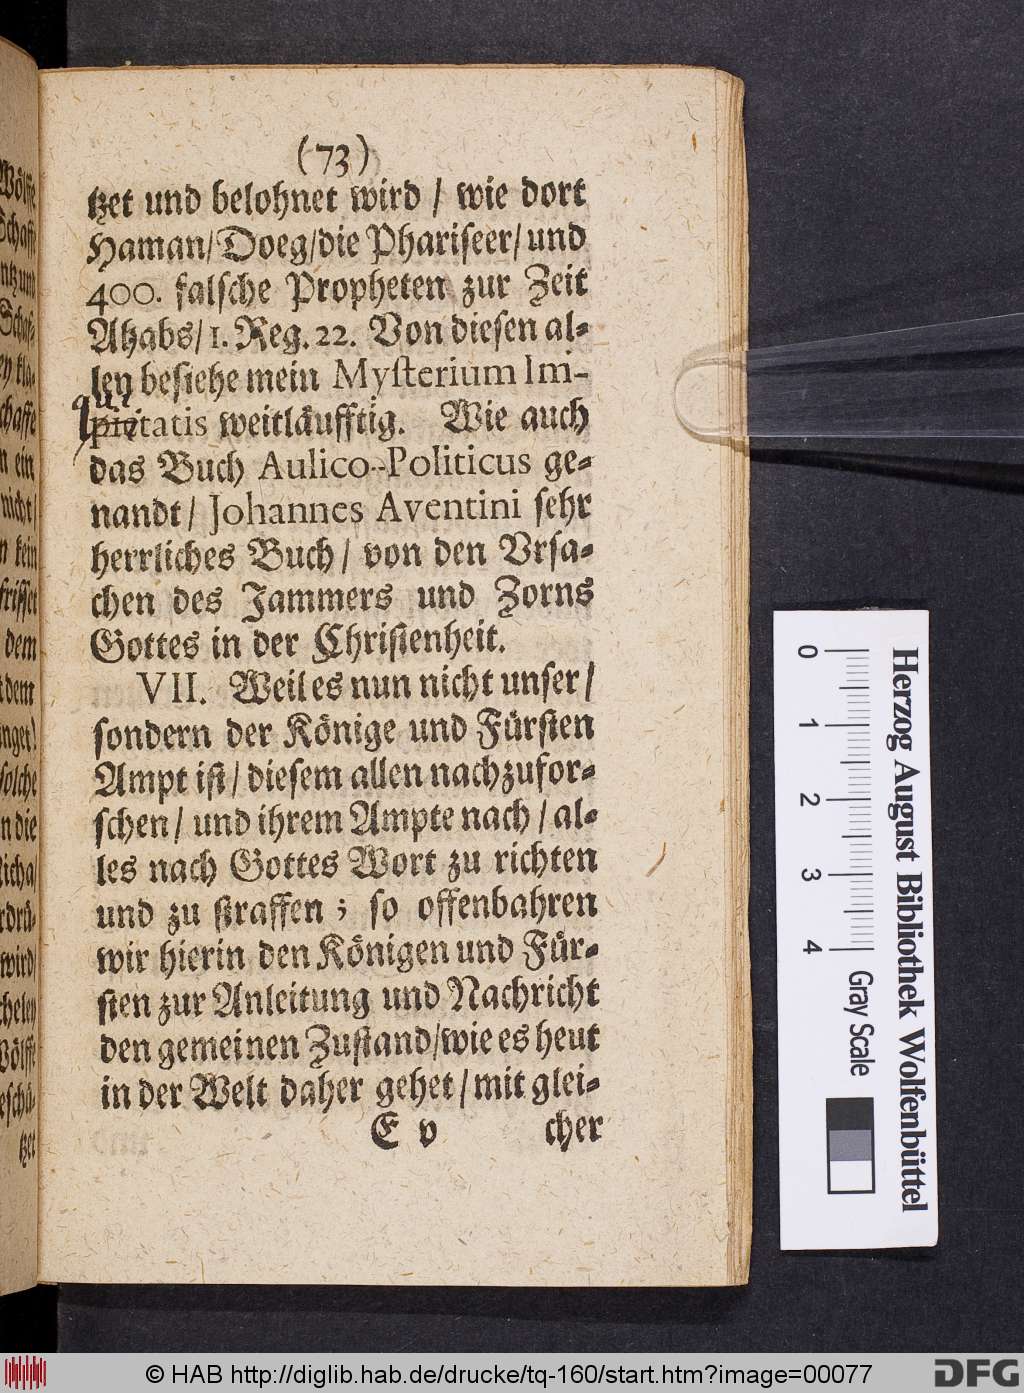 (73)
tzet und belohnet wird / wie dort
Haman/ Doeg/die Phariseer/ und
400. falsche Propheten zur Zeit
Ahabs/ 1. Reg. 22. Von diesen al-
len besiehe mein Mysterium Im-
pietatis weitläufftig. Wie auch
das Buch Aulico-Politicus ge-
nandt/ Johannes Aventini sehr
herrliches Buch/ von den Vrsa-
chen des Jammers und Zorns
Gottes in der Christenheit.
VII. Weil es nun nicht unser/
sondern der Könige und Fürsten
Ampt ist/ diesem allen nachzufor-
schen/ und ihrem Ampte nach/ al-
les nach Gottes Wort zu richten
und zu straffen; so offenbahren
wir hierin den Königen und Für-
sten zur Anleitung und Nachricht
den gemeinen Zustand/wie es heut
in der Welt daher gehet/ mit glei-
E v cher
Wölffe
ntz und
ey kla-
schaffe
n ein
nicht/
n kein
frisset
dem
t dem
solche
n die
rdrü-
wird/
Wölff
eschü-
tzet
0
1
2
3
4
Gray Scale
Herzog August Bibliothek Wolfenbüttel
© HAB http://diglib.hab.de/drucke/tq-160/start.htm?image=00077
DFG